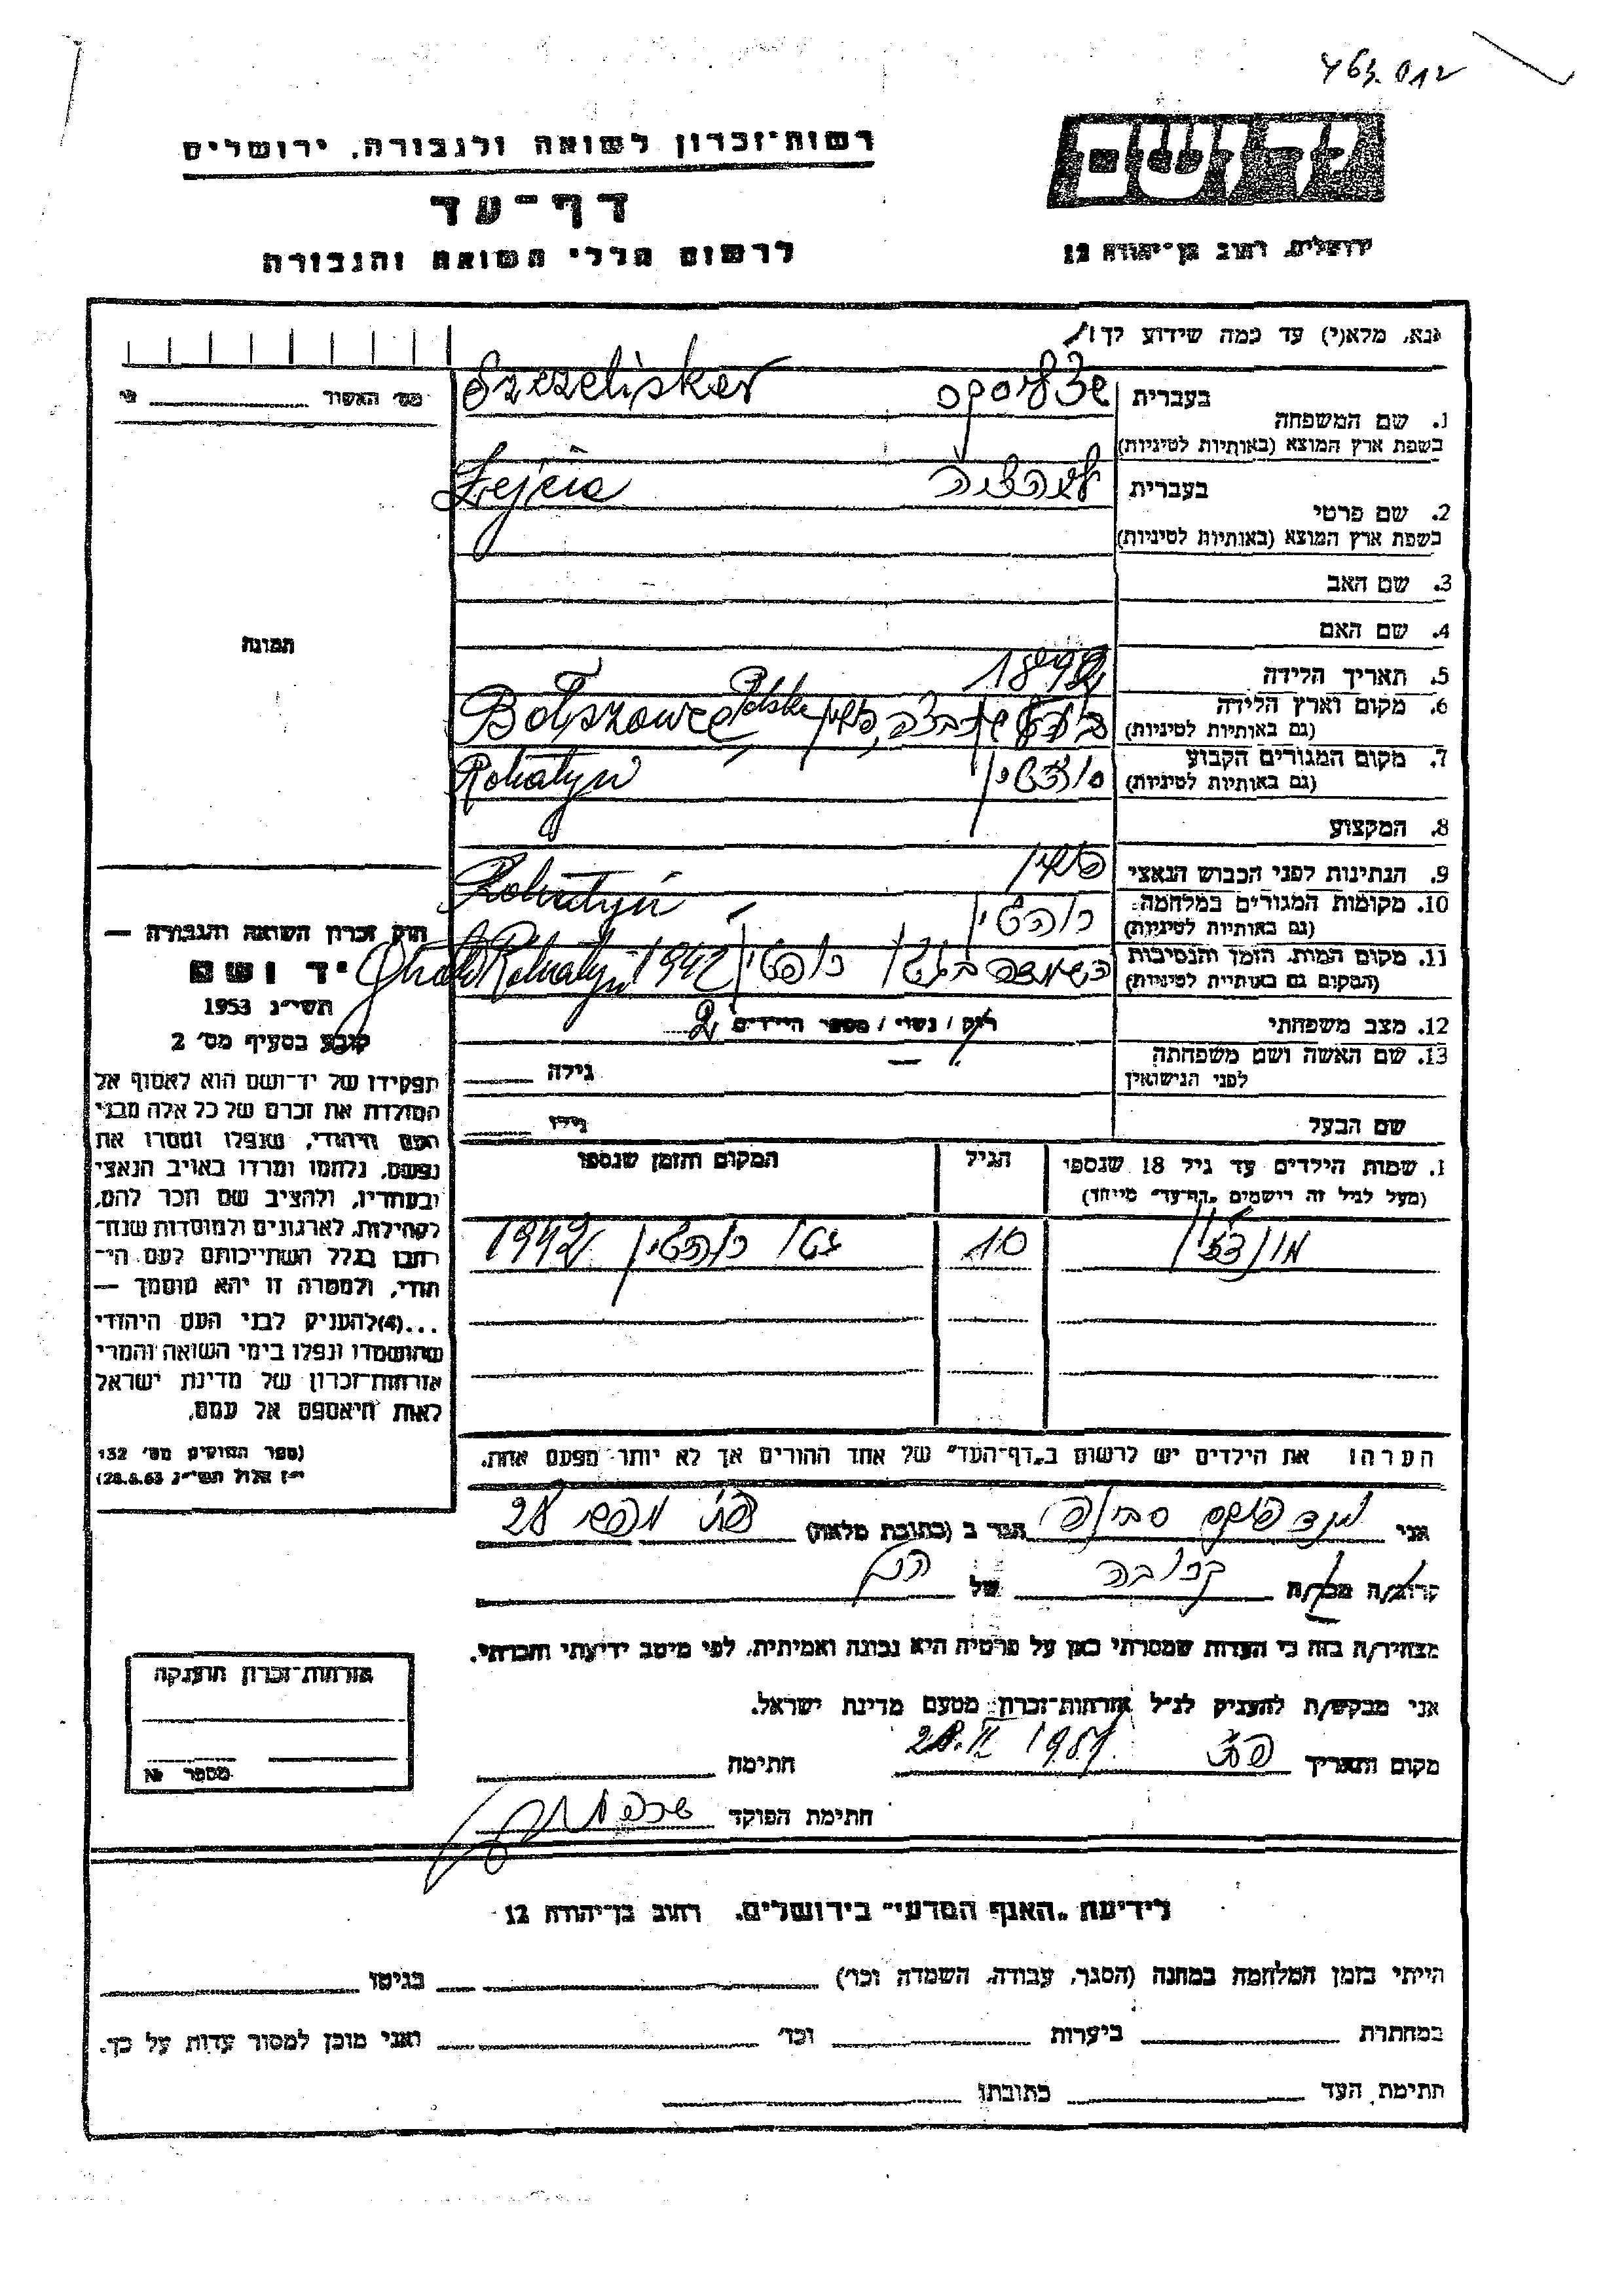 463.012
רשות־זכרון לשואה ולגבורה, ירושלים
יד ושם
דף־עד
לרשום חללי השואה והגבורה
ירושלים, רחוב בן־יהודה 12
אנא, מלא(י) עד כמה שידוע לך:
מס׳ האשור
1. שם המשפחה
בעברית
Szczelisker
בשפת ארץ המוצא (באותיות לטיניות)
2. שם פרטי
בעברית
Lejcia
בשפת ארץ המוצא (באותיות לטיניות)
3. שם האב
4. שם האם
תמונה
5. תאריך הלידה
6. מקום וארץ הלידה
(גם באותיות לטיניות)
פולין Polska Bołszowce
7. מקום המגורים הקבוע
(גם באותיות לטיניות)
Rohatyn
8. המקצוע
9. הנתינות לפני הכבוש הנאצי
פולין
10. מקומות המגורים במלחמה
(גם באותיות לטיניות)
רוהטין Rohatyn
11. מקום המות, הזמן והנסיבות
(המקום גם באותיות לטיניות)
הושמדה בגטו רוהטין 1942 Rohatyn
12. מצב משפחתי
רווק / נשוי / מספר הילדים 2
13. שם האשה ושם משפחתה
לפני הנישואין
גילה
שם הבעל
גילו
חוק זכרון השואה והגבורה —
יד ושם
תשי״ג 1953
קובע בסעיף מס׳ 2
תפקידו של יד־ושם הוא לאסוף אל
המולדת את זכרם של כל אלה מבני
העם היהודי, שנפלו ומסרו את
נפשם, נלחמו ומרדו באויב הנאצי
ובעוזריו, ולהציב שם וזכר להם,
לקהילות, לארגונים ולמוסדות שנח־
רבו בגלל השתייכותם לעם הי־
הודי, ולמטרה זו יהא מוסמך —
...(4) להעניק לבני העם היהודי
שהושמדו ונפלו בימי השואה והמרי
אזרחות־זכרון של מדינת ישראל
לאות היאספם אל עמם.
(ספר החוקים מס׳ 132
י״ז אלול תשי״ג 28.8.53)
1. שמות הילדים עד גיל 18 שנספו
(מעל לגיל זה רושמים „דף־עד״ מיוחד)
הגיל
המקום והזמן שנספו
10
גטו רוהטין 1942
הערה: את הילדים יש לרשום ב„דף־העד״ של אחד ההורים אך לא יותר מפעם אחת.
אני
הגר ב (כתובת מלאה)
28
קרוב/ה מכר/ה קרובה של הנ״ל
מצהיר/ה בזה כי העדות שמסרתי כאן על פרטיה היא נכונה ואמיתית, לפי מיטב ידיעתי והכרתי.
אני מבקש/ת להעניק לנ״ל אזרחות־זכרון מטעם מדינת ישראל.
מקום ותאריך
חתימה
חתימת הפוקד
אזרחות־זכרון הוענקה
מספר
לידיעת „האגף המדעי״ בירושלים, רחוב בן־יהודה 12
הייתי בזמן המלחמה במחנה (הסגר, עבודה, השמדה וכו׳) בגיטו
במחתרת ביערות וכו׳ ואני מוכן למסור עדות על כך.
חתימת העד כתובתו